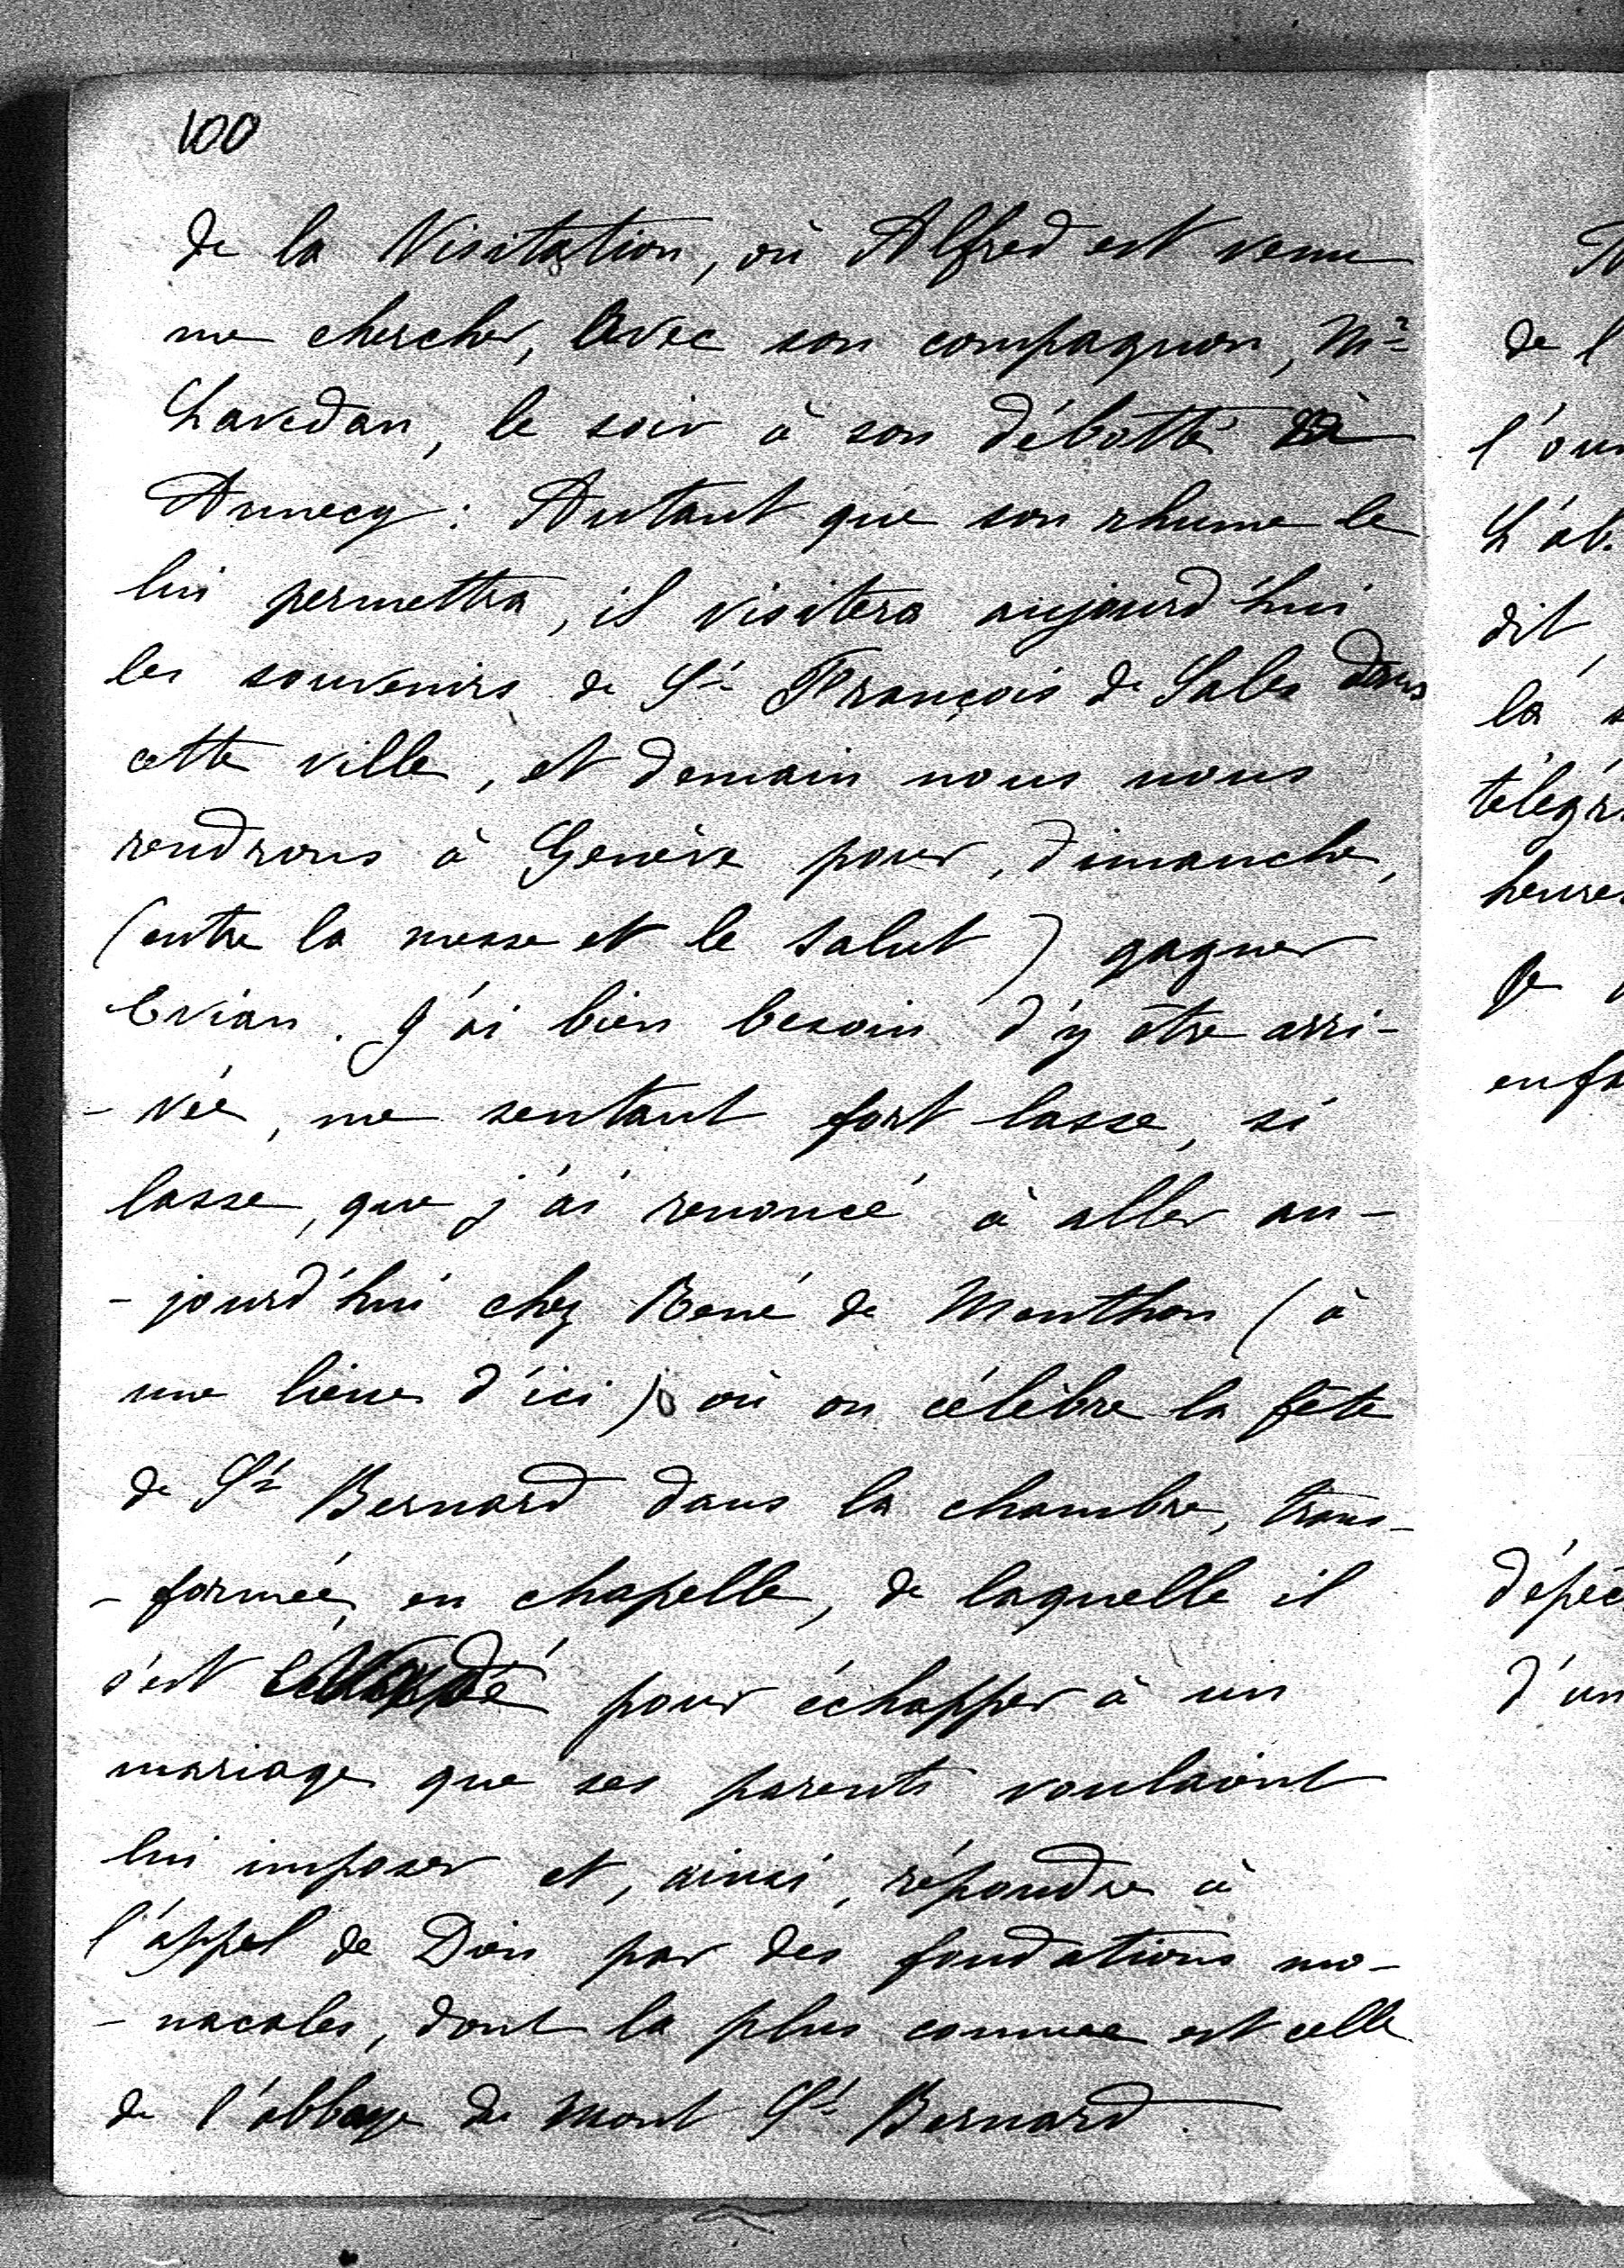 100
de la Visitation, où Alfred est venu
me chercher, avec son compagnon, Mr
Lavedan, le soir à son débotté à
Annecy : Autant que son rhume le
lui permettra, il visitera aujourd'hui
les souvenirs de St François de Sales dans
cette ville, et demain nous nous
rendrons à Genève pour, dimanche,
(entre la messe et le salut) gagner
Evian. J'ai bien besoin d'y être arri-
-vée, me sentant fort lasse, si
lasse, que j'ai renoncé à aller au-
-jourd'hui chez René de Menthon (à
une lieue d'ici) où on célèbre la fête
de St Bernard dans la chambre, trans-
-formée en chapelle, de laquelle il
s'est pour échapper à un
mariage que ses parents voulaient
lui imposer et, ainsi, répondre à
l'appel de Dieu par des fondations mo-
-nacales, dont la plus connue est celle
de l'abbaye du Mont St Bernard.
de l'
dit,
la